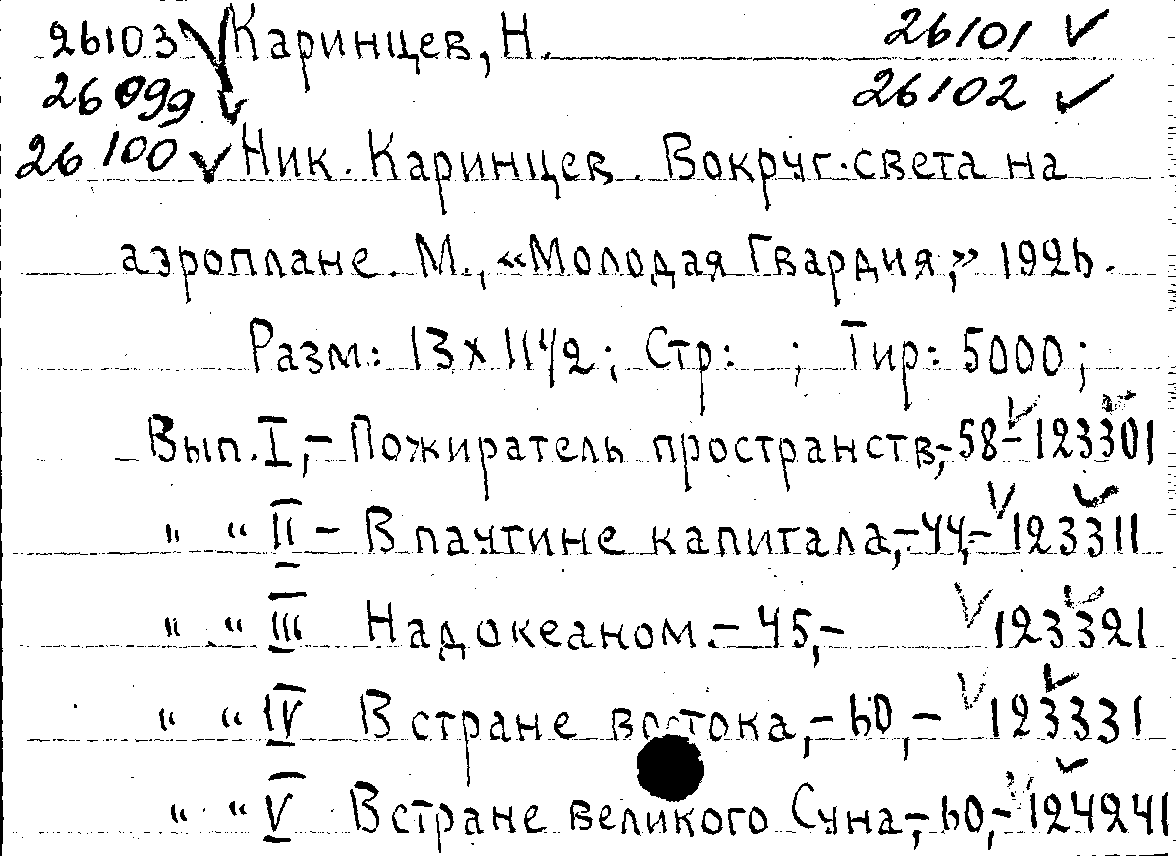 26103 Каринцев, Н. 26101
26099 26102
26100 Ник. Каринцев. Вокруг света на
аэроплане. М., «Молодая Гвардия,» 1926.
Разм: 13 х 11 1/2; Стр: ; Тир: 5000;
Вып. I,- Пожиратель пространств,-58-123301
" " II - В паутине капитала,-44,-123311
" " III Над океаном.-45,- 123321
" " IV В стране востока,-60,- 123331
" " V В стране великого Суна,-60,-124241